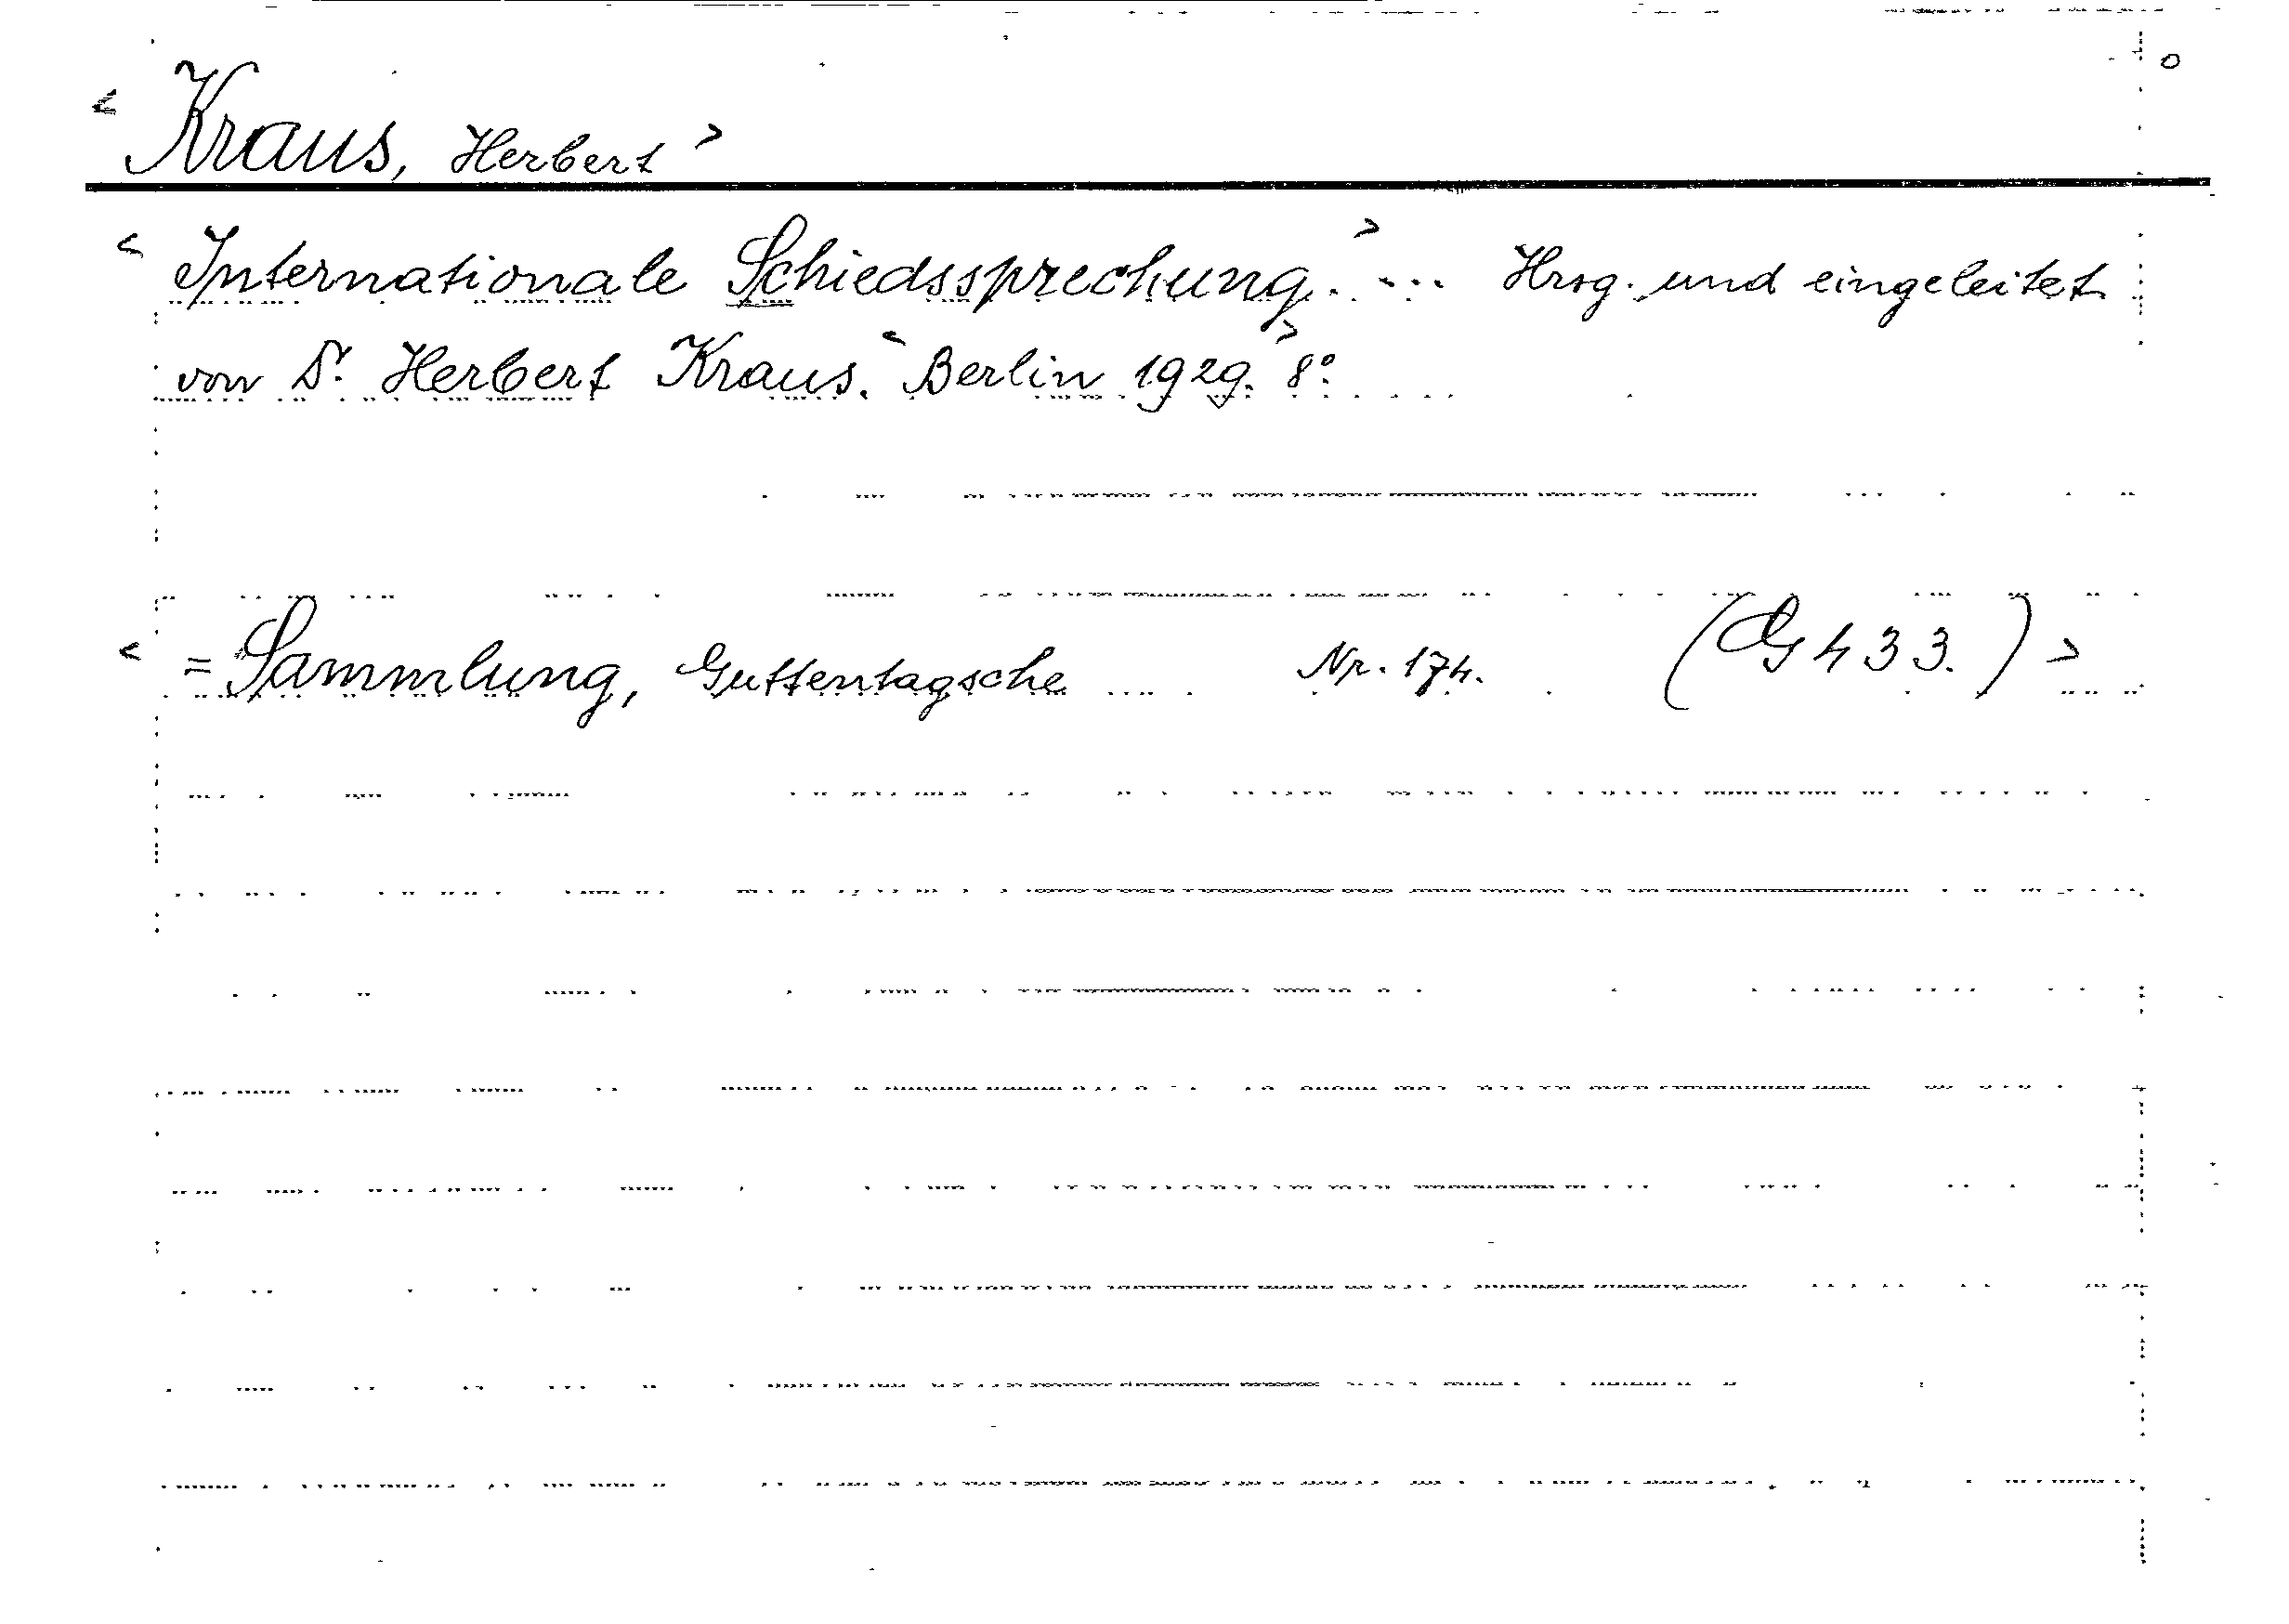 < Kraus, Herbert >
< Internationale Schiedssprechung. > ... Hrsg. und eingeleitet
von Dr. Herbert Kraus. < Berlin 1929. > 8°.
< = Sammlung, Guttentagsche Nr. 174. (G 433.) >